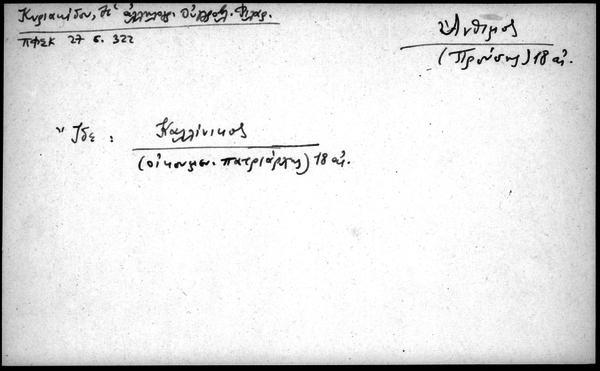 Κυριακίδου, Αἱ ἀλληλογρ. Συλλογ. Φλαρ.
ΠΦΣΚ 27 σ. 322
Ἄνθιμος
(Προύσης) 18 αἰ.
Ἴδε : Καλλίνικος
(οἰκουμεν. πατριάρχης) 18 αἰ.